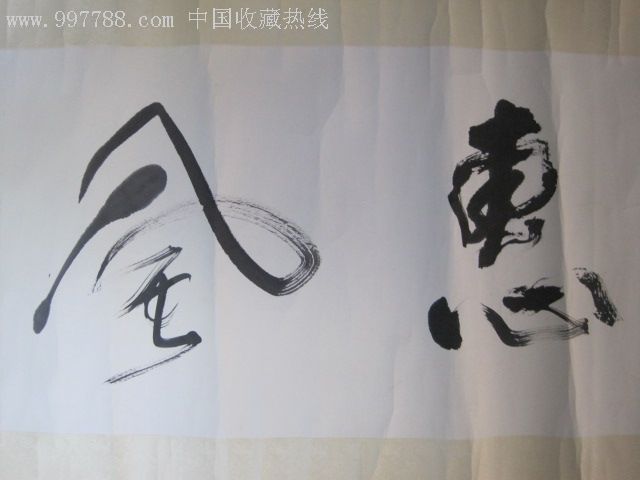 www.997788.com 中国收藏热线
惠風